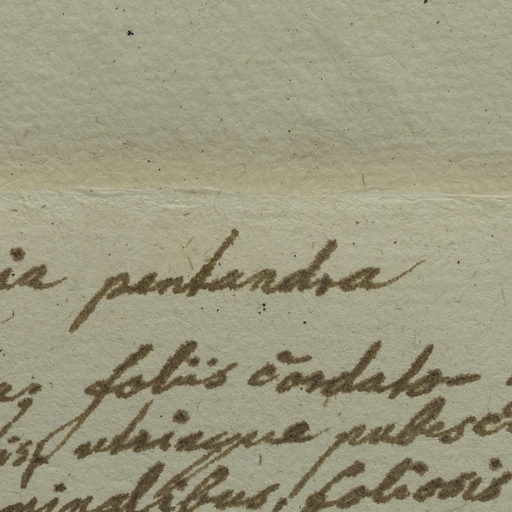 ia pentandra
foliis cordato-
utrinque pubesc
minalibus, foliosis